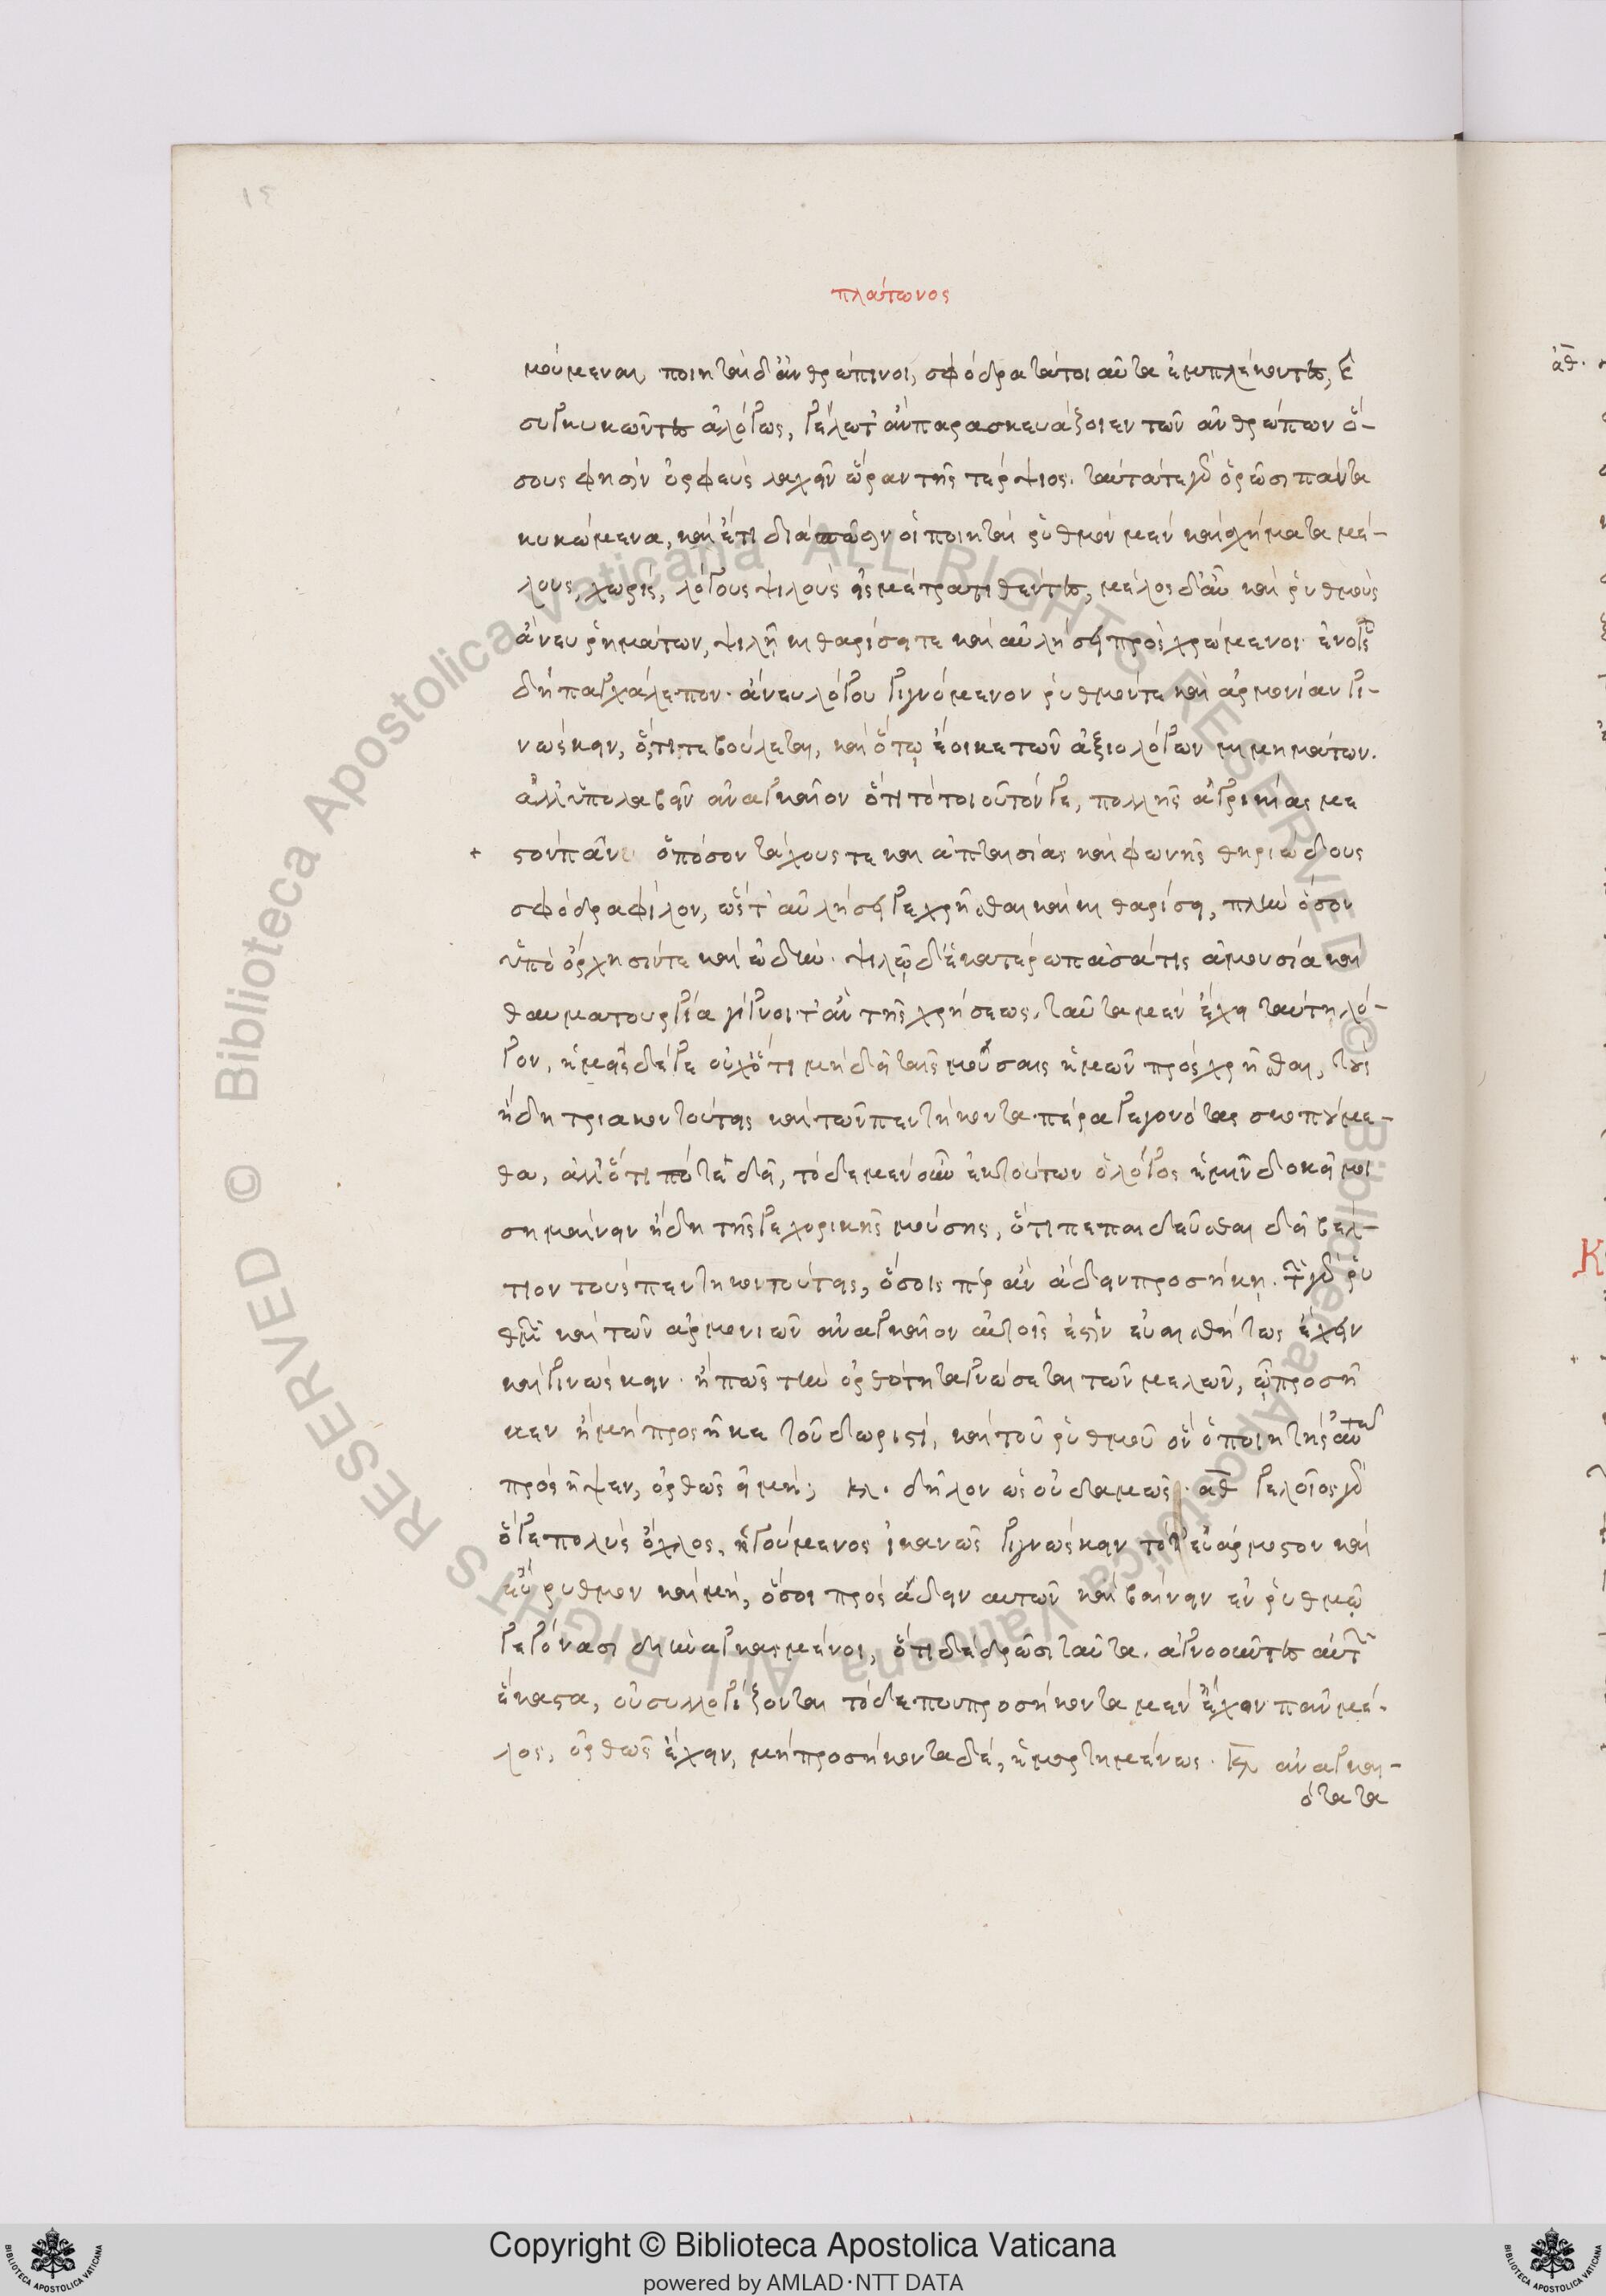 πλάτωνος
μούμεναι, ποιηταὶ δ' ἀνθρώπινοι, σφόδρα τὰ τοιαῦτα ἐμπλέκοντες, καὶ
συγκυκῶντες ἀλόγως, γέλωτ' ἂν παρασκευάζοιεν τῶν ἀνθρώπων ὅ-
σους φησὶν ὀρφεὺς λαχεῖν ὥραν τῆς τέρψιος. ταῦτά τε γὰρ ὁρῶσι πάντα
κυκώμενα, καὶ ἔτι διασπῶσιν οἱ ποιηταὶ ῥυθμὸν μὲν καὶ σχήματα μέ-
λους, χωρὶς, λόγους ψιλοὺς εἰς μέτρα τιθέντες, μέλος δ' αὖ καὶ ῥυθμοὺς
ἄνευ ῥημάτων, ψιλῇ κιθαρίσει τε καὶ αὐλήσει προσχρώμενοι. ἐν οἷς
δὴ παγχάλεπον. ἄνευ λόγου γιγνόμενον ῥυθμόν τε καὶ ἁρμονίαν γι-
νώσκειν, ὅ,τι τε βούλεται, καὶ ὅτῳ ἔοικε τῶν ἀξιολόγων μιμημάτων.
ἀλλ' ὑπολαβεῖν ἀναγκαῖον ὅτι τὸ τοιοῦτόν γε, πολλῆς ἀγροικίας με
στὸν πᾶν ὁπόσον τάχους τε καὶ ἀπταισίας καὶ φωνῆς θηριώδους
σφόδρα φίλον, ὥστ' αὐλήσει γε χρῆσθαι καὶ κιθαρίσει, πλὴν ὅσον
ὑπὸ ὄρχησίν τε καὶ ᾠδήν. ψιλῷ δ' ἑκατέρῳ πᾶσά τις ἀμουσία καὶ
θαυματουργία γίγνοιτ' ἂν τῆς χρήσεως. ταῦτα μὲν ἔχει ταύτῃ λό-
γον, ἡμεῖς δέ γε οὐχ ὅτι μὴ δεῖ ταῖς μούσαις ἡμῶν προσχρῆσθαι, τοὺς
ἤδη τριακοντούτας καὶ τῶν πεντήκοντα πέρα γεγονότας σκοπούμε-
θα, ἀλλ' ὅτι ποτὲ δεῖ, τόδε μὲν οὖν ἐκ τούτων ὁ λόγος ἡμῖν δοκεῖ μοι
σημαίνειν ἤδη τῆς γε χορικῆς μούσης, ὅτι πεπαιδεῦσθαι δεῖ βέλ-
τιον τοὺς πεντηκοντούτας, ὅσοις περ ἂν ᾄδειν προσήκῃ. τῶν γὰρ ῥυ
θμῶν καὶ τῶν ἁρμονιῶν ἀναγκαῖον αὐτοῖς ἐστὶν εὐαισθήτως ἔχειν
καὶ γινώσκειν. ἢ πῶς τὴν ὀρθότητα γνώσεται τῶν μελῶν, ᾧ προσῆ
κεν ἢ μὴ προσῆκε τοῦ δωριστὶ, καὶ τοῦ ῥυθμοῦ ὃν ὁ ποιητὴς αὐτῷ
προσῆψεν, ὀρθῶς ἢ μή; κλ. δῆλον ὡς οὐδαμῶς. αθ γελοῖος γὰρ
ὅ γε πολὺς ὄχλος, ἡγούμενος ἱκανῶς γιγνώσκειν τό τ' εὐάρμοστον καὶ
εὔρυθμον καὶ μὴ, ὅσοι προσᾴδειν αὐτῶν καὶ βαίνειν ἐν ῥυθμῷ
γεγόνασι διηναγκασμένοι, ὅτι δὲ δρῶσι ταῦτα. ἀγνοοῦντες αὐτῶν
ἕκαστα, οὐ συλλογίζονται τὸ δέ που προσήκοντα μὲν ἔχειν πᾶν μέ-
λος, ὀρθῶς ἔχειν, μὴ προσήκοντα δὲ, ἡμαρτημένως. κλ ἀναγκαι-
ότατα